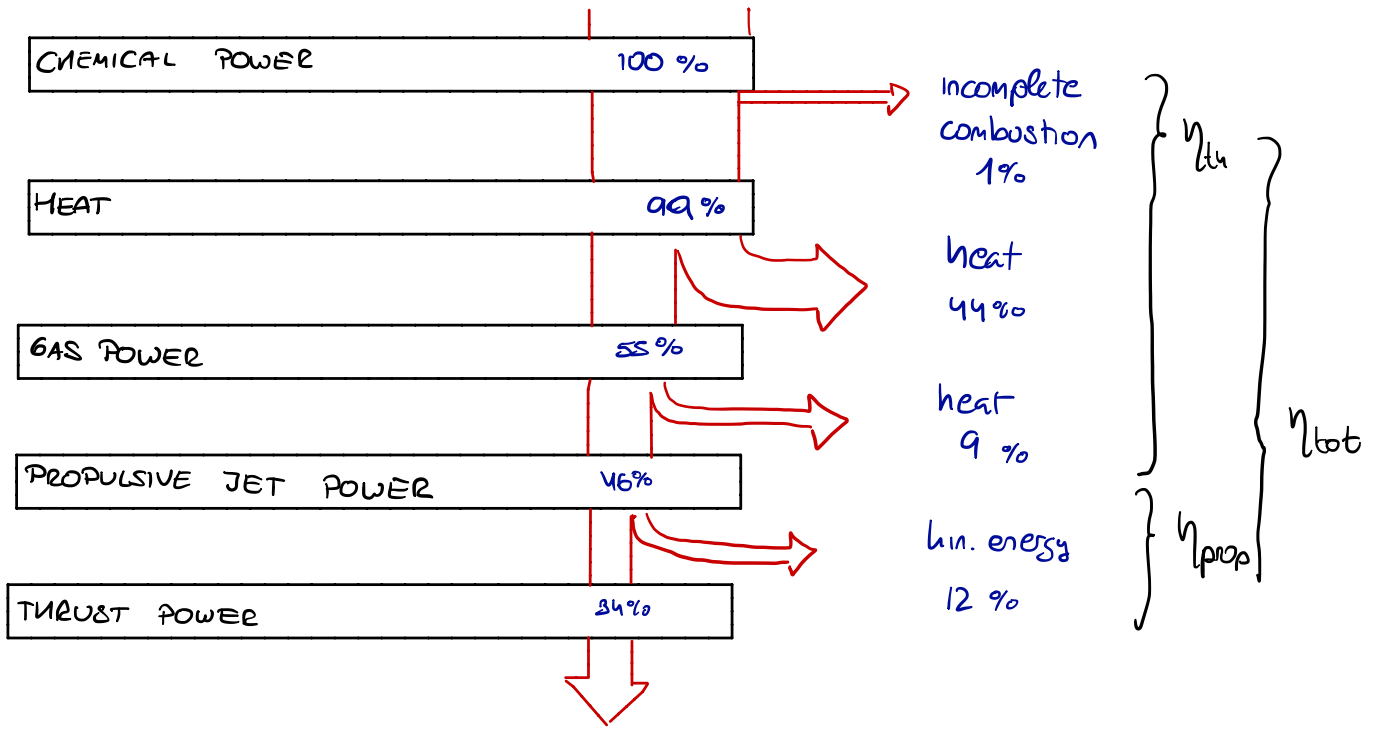 CHEMICAL POWER 100 %
incomplete
combustion
1%
η_th
HEAT 99 %
heat
44%
GAS POWER 55 %
heat
9 %
η_tot
PROPULSIVE JET POWER 46%
kin. energy
12 %
η_prop
THRUST POWER 34%